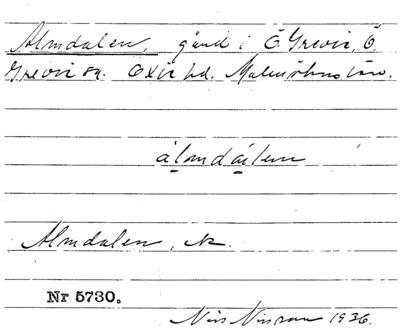 Almdalen, gård i Ö. Grevie, Ö.
Grevie sn. Oxie hd. Malmöhus län.
Almdalen, ek.
Nr 5730.
Nils Nilsson 1936.